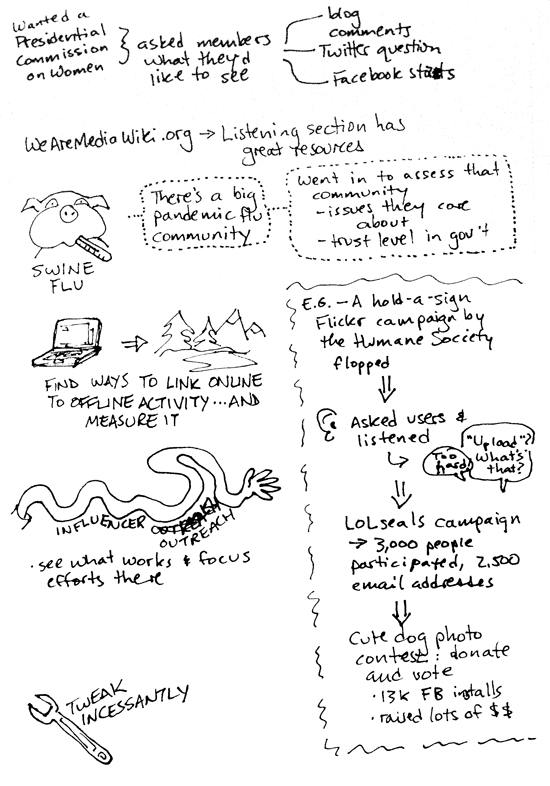 Wanted a
Presidential
Commission
on Women
asked members
what they'd
like to see
blog
comments
Twitter question
Facebook stats
WeAreMediaWiki.org → Listening section has
great resources
There's a big
pandemic flu
community
went in to assess that
community
- issues they care
about
- trust level in gov't
SWINE
FLU
FIND WAYS TO LINK ONLINE
TO OFFLINE ACTIVITY...AND
MEASURE IT
INFLUENCER
OUTREACH
· see what works & focus
efforts there
TWEAK
INCESSANTLY
E.G. - A hold-a-sign
Flickr campaign by
the Humane Society
flopped
Asked users &
listened
Too
hard!
"Upload"?
What's
that?
LOLseals campaign
→ 3,000 people
participated, 2,500
email addresses
Cute dog photo
contest: donate
and vote
· 13k FB installs
· raised lots of $$